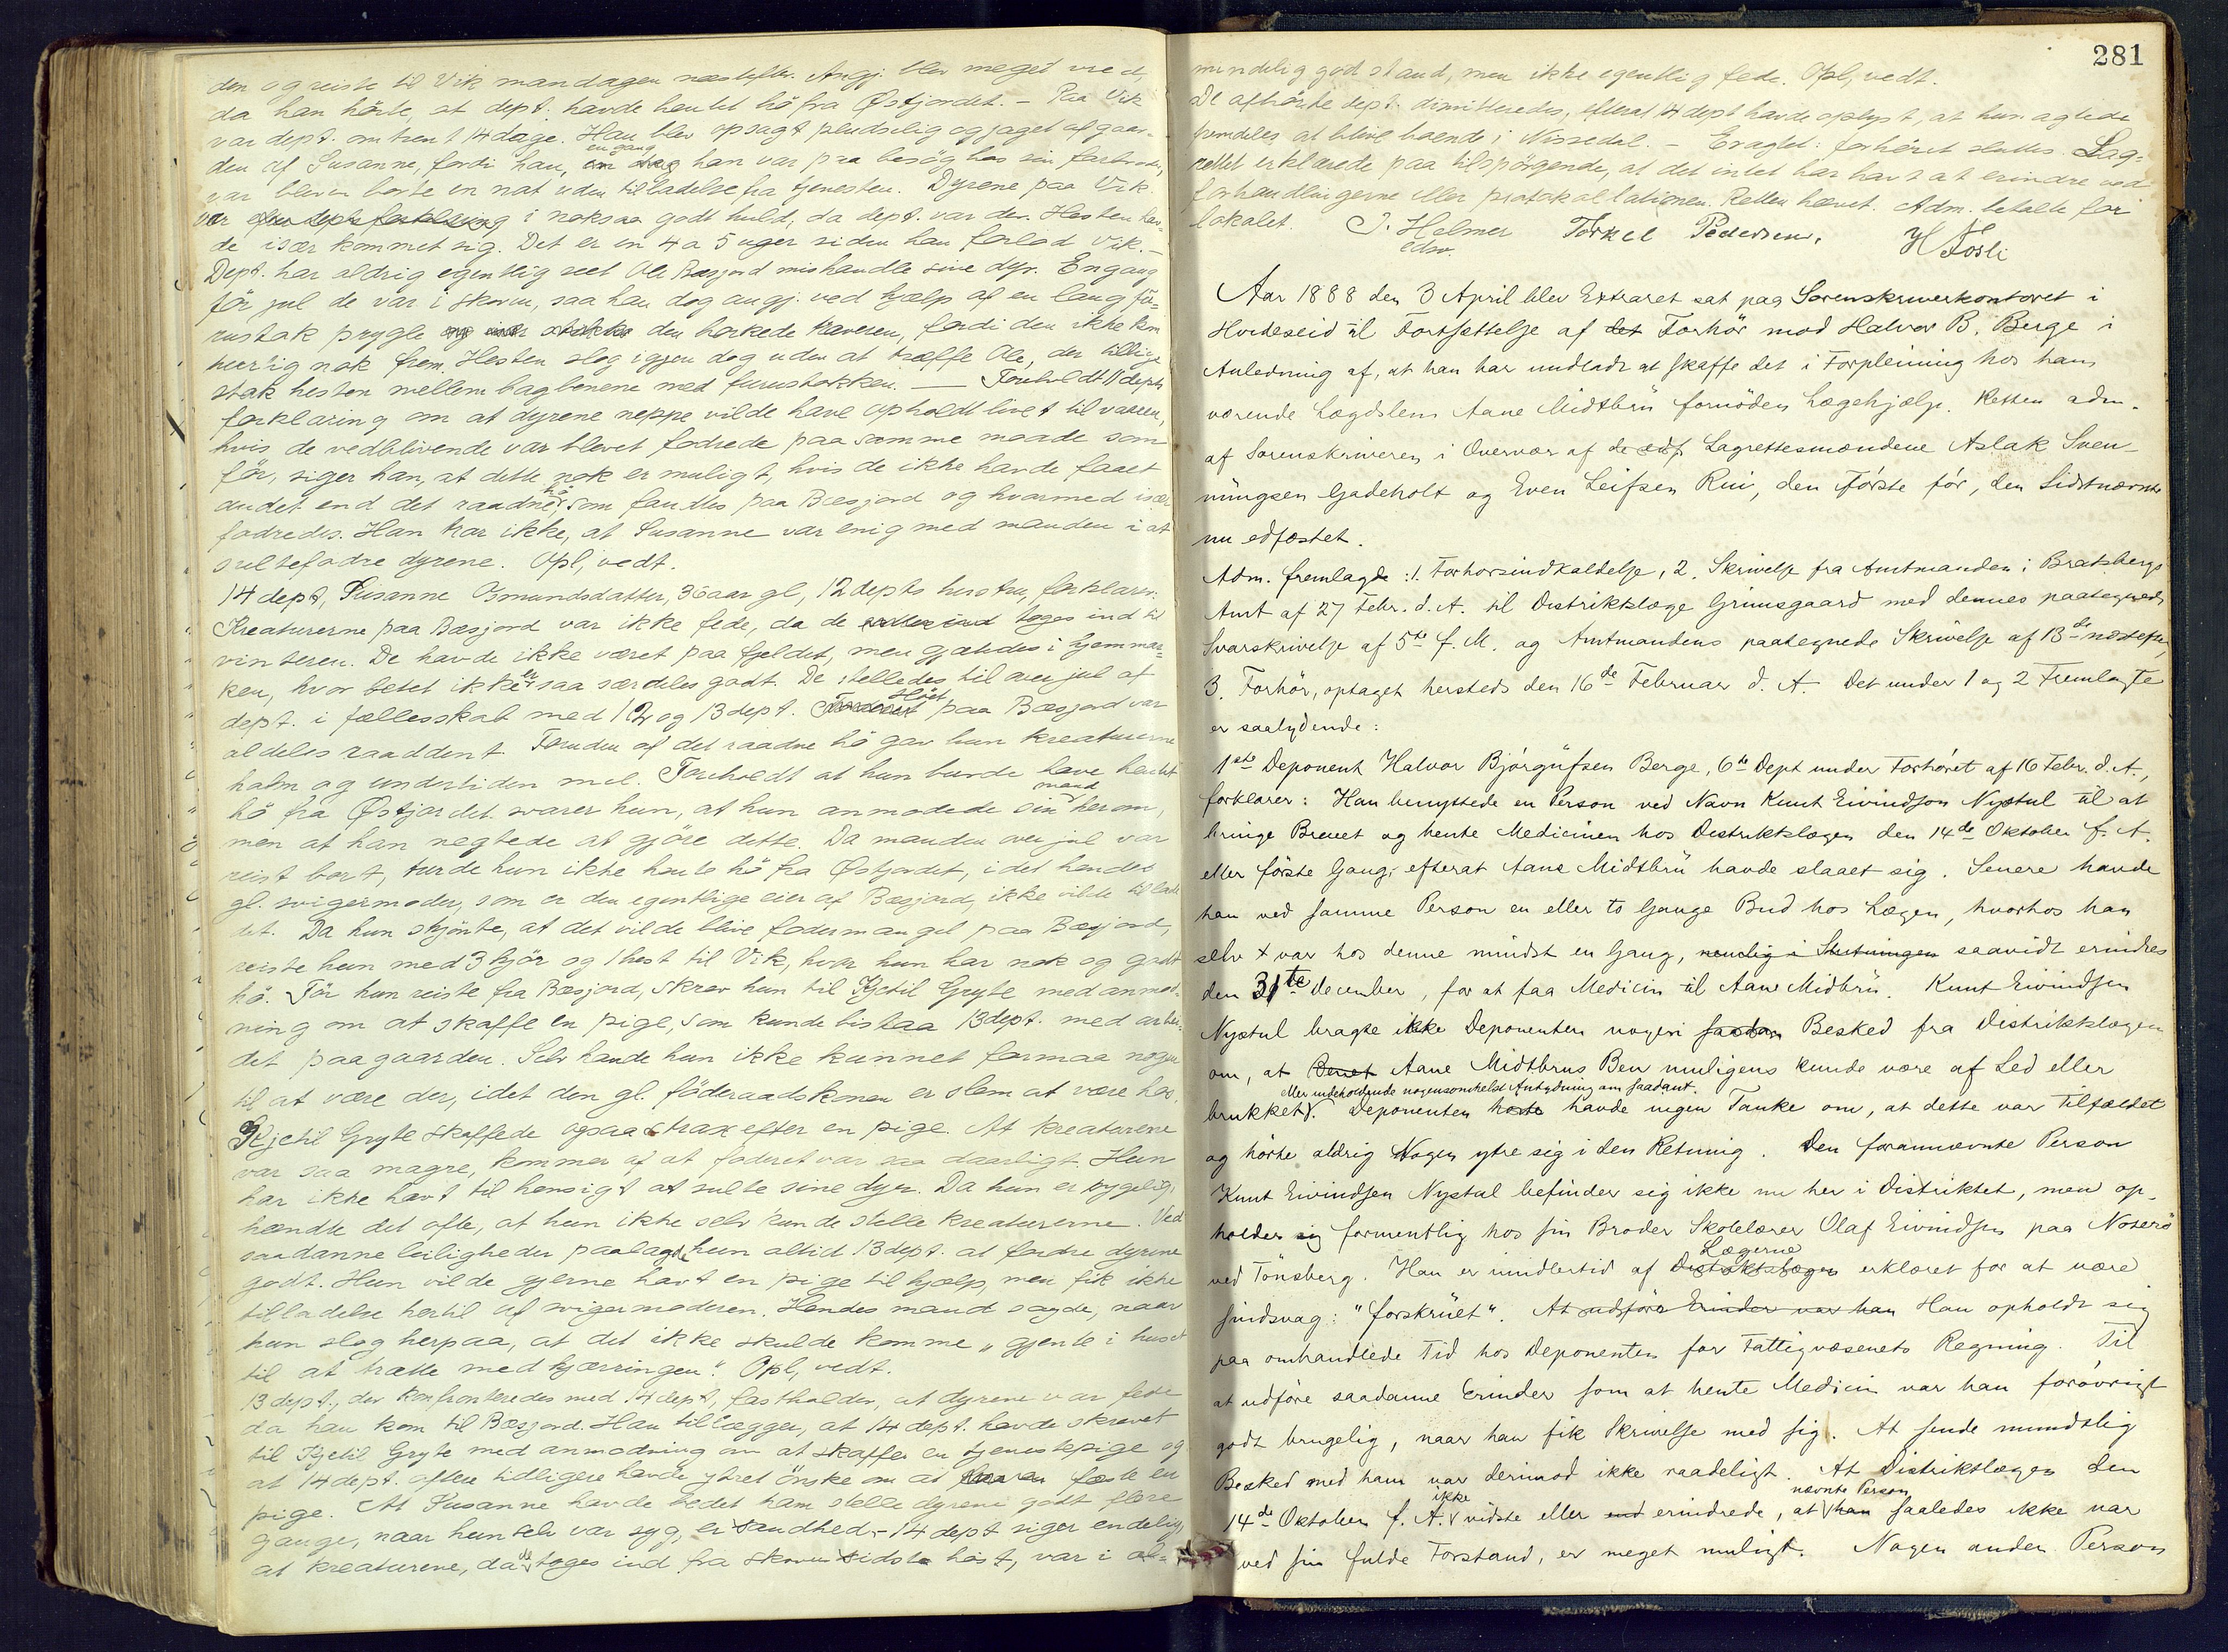 den og reiste til Vik mandagen næstefter. Angj. blev meget vred,
da han hörte, at dept. havde hentet hö fra Østjordet. – Paa Vik
var dept. omtrent 14 dage. Han blev opsagt pludselig og jaget af gaar-
den af Susanne, fordi han, en gang han var paa besög hos sin farbroder,
var bleven borte en nat uden tilladelse fra tjenesten. Dyrene paa Vik
var i noksaa godt huld, da dept. var der. Hesten hav-
de især kommet sig. Det er en 4 a 5 uger siden han forlod Vik. –
Dept. har aldrig egentlig seet Ole Bæsjord mishandle sine dyr. Engang
för jul de var i skoven, saa han dog angj. ved hjælp af en lang fu-
rustak prygle den borkede, fordi den ikke kom
hurtig nok frem. Hesten slog igjen dog uden at træffe Ole, der tillige
stak hesten mellem bagbenene med furustokken. — Foreholdt 11 depts
forklaring om at dyrene neppe vilde have opholdt livet til vaaren,
hvis de vedblivende var blevet fodrede paa samme maade som
för, siger han, at dette nok er muligt, hvis de ikke havde faaet
andet end det raadne hö, som fandtes paa Bæsjord og hvormed især
fodredes. Han tror ikke, at Susanne var enig med manden i at
sultefodre dyrene. Opl, vedt.
14 dept, Susanne Osmundsdatter, 36 aar gl, 12 depts hustru, forklarer:
Kreaturerne paa Bæsjord var ikke fede, da de toges ind til
vinteren. De havde ikke været paa fjeldet, men gjætedes i hjemmar-
ken, hvor betet ikke er saa særdeles godt. De stelledes til over jul af
dept. i fællesskab med 12 og 13 dept. Höet paa Bæsjord var
aldeles raaddent. Foruden af det raadne hö gav hun kreaturerne
halm og undertiden mel. Foreholdt at hun burde have hentet
hö fra Østjordet svarer hun, at hun anmodede sin mand herom,
men at han negtede at gjöre dette. Da manden over jul var
reist bort, turde hun ikke hente hö fra Østjordet, idet hendes
gl. svigermoder, som er den egentlige eier af Bæsjord, ikke vilde tillade
det. Da hun skjönte, at det vilde blive fodermangel paa Bæsjord,
reiste hun med 3 kjör og 1 hest til Vik, hvor hun har nok og godt
hö. För hun reiste fra Bæsjord, skrev hun til Kjetil Gryte med anmod-
ning om at skaffe en pige, som kunde bistaa 13 dept. med arbei-
det paa gaarden. Selv havde hun ikke kunnet formaa nogen
til at være der, idet den gl. föderaadskonen er slem at være hos.
Kjetil Gryte skaffede ogsaa strax efter en pige. At kreaturene
var saa magre, kommer af at foderet var saa daarligt. Hun
har ikke havt til hensigt at sulte sine dyr. Da hun er sygelig,
hændte det ofte, at hun ikke selv kunde stelle kreaturerne. Ved
saadanne leiligheder paalagde hun altid 13 dept. at fodre dyrene
godt. Hun vilde gjerne havt en pige til hjælp, men fik ikke
tilladelse hertil af svigermoderen. Hendes mand sagde, naar
hun slog herpaa, at det ikke skulde komme „gjente i huset
til at trætte med kjærringen". Opl, vedt.
13 dept., der konfronteredes med 14 dept, fastholder, at dyrene var fede
da han kom til Bæsjord. Han tillægger, at 14 dept. havde skrevet
til Kjetil Gryte med anmodning om at skaffe en tjenestepige og
at 14 dept. oftere tidligere havde ytret önske om at fæste en
pige. At Susanne havde bedet ham stelle dyrene godt flere
gange, naar hun selv var syg, er sandhed. – 14 dept siger endelig,
at kreaturene, da de toges ind fra skoven sidste höst, var i al-
281
mindelig god stand, men ikke egentlig fede. Opl, vedt.
De afhörte dept. dimitteredes, efterat 14 dept havde oplyst, at hun agtede
fremdeles at blive boende i Nissedal. – Eragtet: forhöret sluttes. Lag-
rettet erklærede paa tilspörgende, at det intet har havt at erindre ved
forhandlingerne eller protokollationen. Retten hævet. Adm. betalte for
lokalet. J. Helmer Torkel Pedersen, H Fosli
edsv.
Aar 1888 den 3 April blev Extraret sat paa Sorenskriverkontoret i
Hvideseid til Fortsættelse af det Forhör mod Halvor B. Berge i
Anledning af, at han har undladt at skaffe det i Forpleining hos ham
værende Lægdslem Aane Midtbrü fornöden Lægehjælp. Retten adm.
af Sorenskriveren i Overvær af de edsf Lagrettesmændene Aslak Sven-
nüngsen Gadeholt og Even Leifsen Rui, den Förste för, den Sidstnævnte
nu edfæstet.
Adm. fremlagde: 1. Forhörsindkaldelse, 2. Skrivelse fra Amtmanden i Bratsbergs
Amt af 27 Febr. d. A. til Distriktslæge Grimsgaard med dennes paategnede
Svarskrivelse af 5te f. M. og Amtmandens paategnede Skrivelse af 13de næstefter,
3. Forhör, optaget hersteds den 16de Februar d. A. Det under 1 og 2 Fremlagte
er saalydende:
1ste Deponent Halvor Bjórgüfsen Berge, 6te Dept under Forhöret af 16 Febr. d. A.,
forklarer: Han benyttede en Person ved Navn Knut Eivindson Nystul til at
bringe Brevet og hente Medicinen hos Distriktslægen den 14de Oktober f. A.
eller förste Gang, efterat Aane Midtbrü havde slaaet sig. Senere havde
han ved samme Person en eller to Gange Bud hos Lægen, hvorhos han
selv + var hos denne mindst en Gang, nemlig i Slutningen saavidt erindres
den 31te December, for at faa Medicin til Aane Midbrü. Knut Eivindsen
Nystul bragte ikke Deponenten nogen saadan Besked fra Distriktslægen
om, at Benet Aane Midtbrus Ben muligens kunde være af Led eller
brukket eller indeholdende nogensomhelst Antydning om saadant. Deponenten havde ingen Tanke om, at dette var Tilfældet
og hörte aldrig Nogen ytre sig i den Retning. Den forannævnte Person
Knut Eivindsen Nystul befinder sig ikke nu her i Distriktet, men op-
holder sig formentlig hos sin Broder Skolelærer Olaf Eivindsen paa Noterö
ved Tönsberg. Han er imidlertid af Lægerne Distriktslægen erklæret for at være
sindsvag: "forskrüet". At udföre Erinder var han Han opholdt sig
paa omhandlede Tid hos Deponenten for Fattigvæsenets Regning. Til
at udföre saadanne Erinder som at hente Medicin var han forövrigt
godt brugelig, naar han fik Skrivelse med sig. At sende mundtlig
Besked med ham var derimod ikke raadeligt. At Distriktslægen den
14de Oktober f. A. ikke vidste eller erindrede, at nævnte Person han saaledes ikke var
ved sin fulde Forstand, er meget muligt. Nogen anden Person